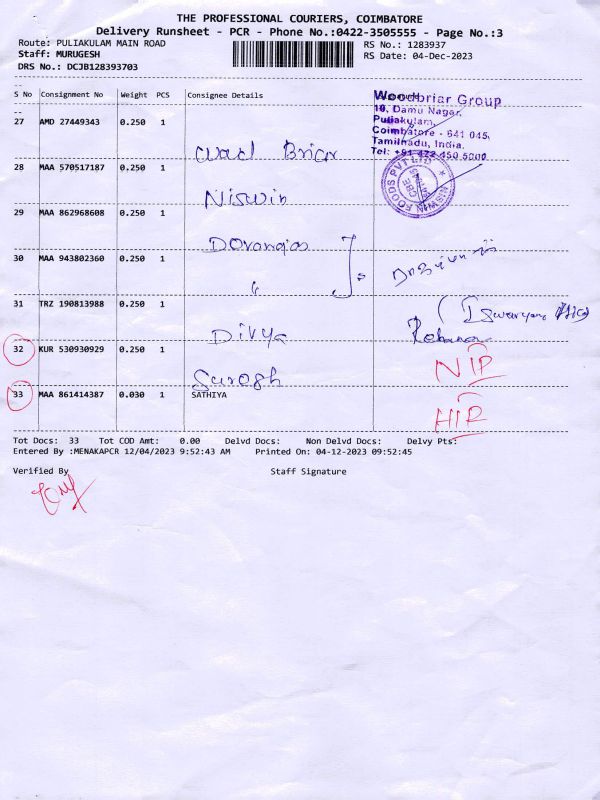 THE PROFESSIONAL COURIERS, COIMBATORE
Delivery Runsheet - PCR - Phone No.:0422-3505555 - Page No.:3
Route: PULIAKULAM MAIN ROAD
RS No.: 1283937
Staff: MURUGESH
RS Date: 04-Dec-2023
DRS No.: DCJB128393703
S No Consignment No Weight PCS Consignee Details
Woodbriar Group
10, Damu Nagar,
Puliakulam,
Coimbatore - 641 045,
Tamilnadu, India.
Tel: +91 422 450 5000
27 AMD 27449343 0.250 1
Briar
NISWIN FOODS PVT LTD
CBE
28 MAA 570517187 0.250 1
Niswin
29 MAA 862968608 0.250 1
30 MAA 943802360 0.250 1
31 TRZ 190813988 0.250 1
Divya
32 KUR 530930929 0.250 1
NIP
Suresh
33 MAA 861414387 0.030 1 SATHIYA
Tot Docs: 33 Tot COD Amt: 0.00 Delvd Docs: Non Delvd Docs: Delvy Pts:
Entered By :MENAKAPCR 12/04/2023 9:52:43 AM Printed On: 04-12-2023 09:52:45
Verified By Staff Signature